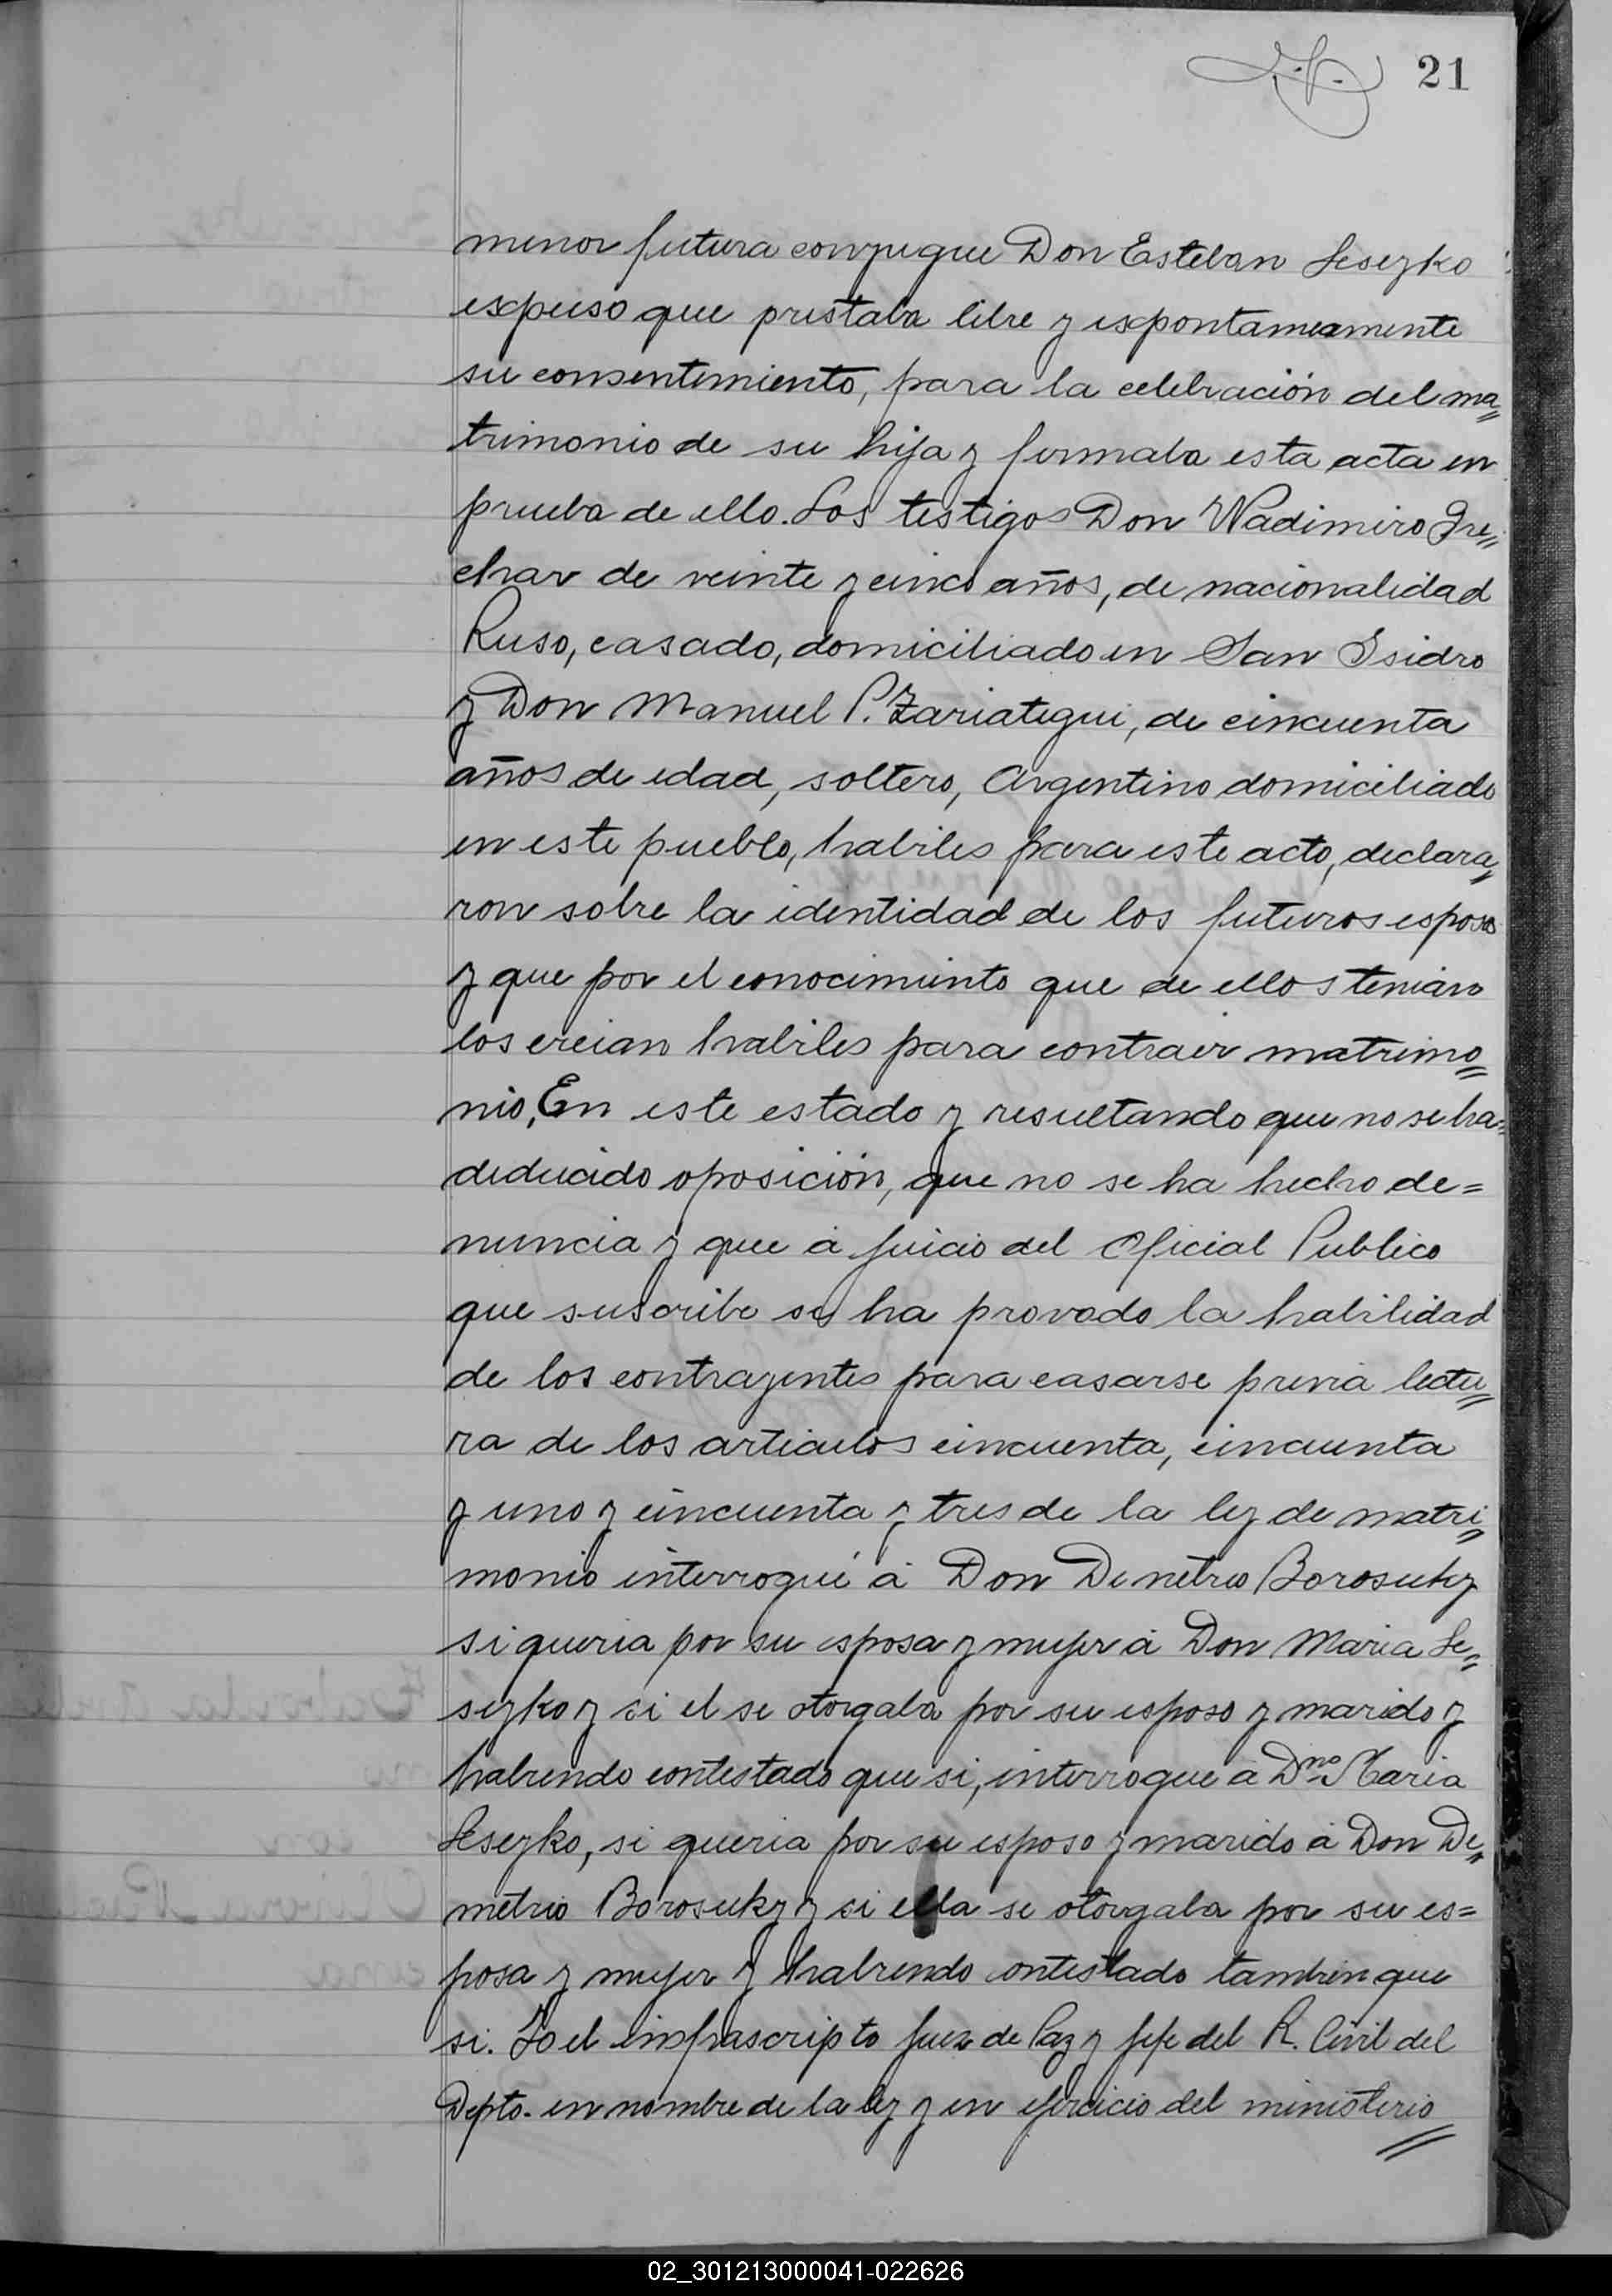 21
menor futura conyugue Don Esteban Seseyko
expuso que prestaba libre y expontaneamente
su consentimiento, para la celebración del ma=
trimonio de su hija y firmaba esta acta en
prueba de ello. Los testigos Don Wadimiro Gre=
char de veinte y cinco años, de nacionalidad
Ruso, casado, domiciliado en San Isidro
y Don Manuel P. Zariategui, de cincuenta
años de edad, soltero, Argentino domiciliado
en este pueblo, habiles para este acto, declara=
ron sobre la identidad de los futuros esposos
y que por el conocimiento que de ellos tenian
los creian habiles para contraer matrimo=
nio, En este estado y resultando que no se ha=
deducido oposición, que no se ha hecho de=
nuncia y que á juicio del Oficial Publico
que suscribe se ha provado la habilidad
de los contrayentes para casarse previa lectu=
ra de los articulos cincuenta, cincuenta
y uno y cincuenta y tres de la ley de matri=
monio interrogué á Don Demetrio Borosuky
si queria por su esposa y mujer á Don Maria Se=
seyko y si el se otorgaba por su esposo y marido y
habiendo contestado que si, interrogue á Dña Maria
Seseyko, si queria por su esposo y marido á Don De=
metrio Borosuky y si ella se otorgaba por su es=
posa y mujer y habiendo contestado tambien que
si. Yo el infrascripto Juez de Paz y Jefe del R. Civil del
Depto. en nombre de la ley y en ejercicio del ministerio
02_301213000041-022626